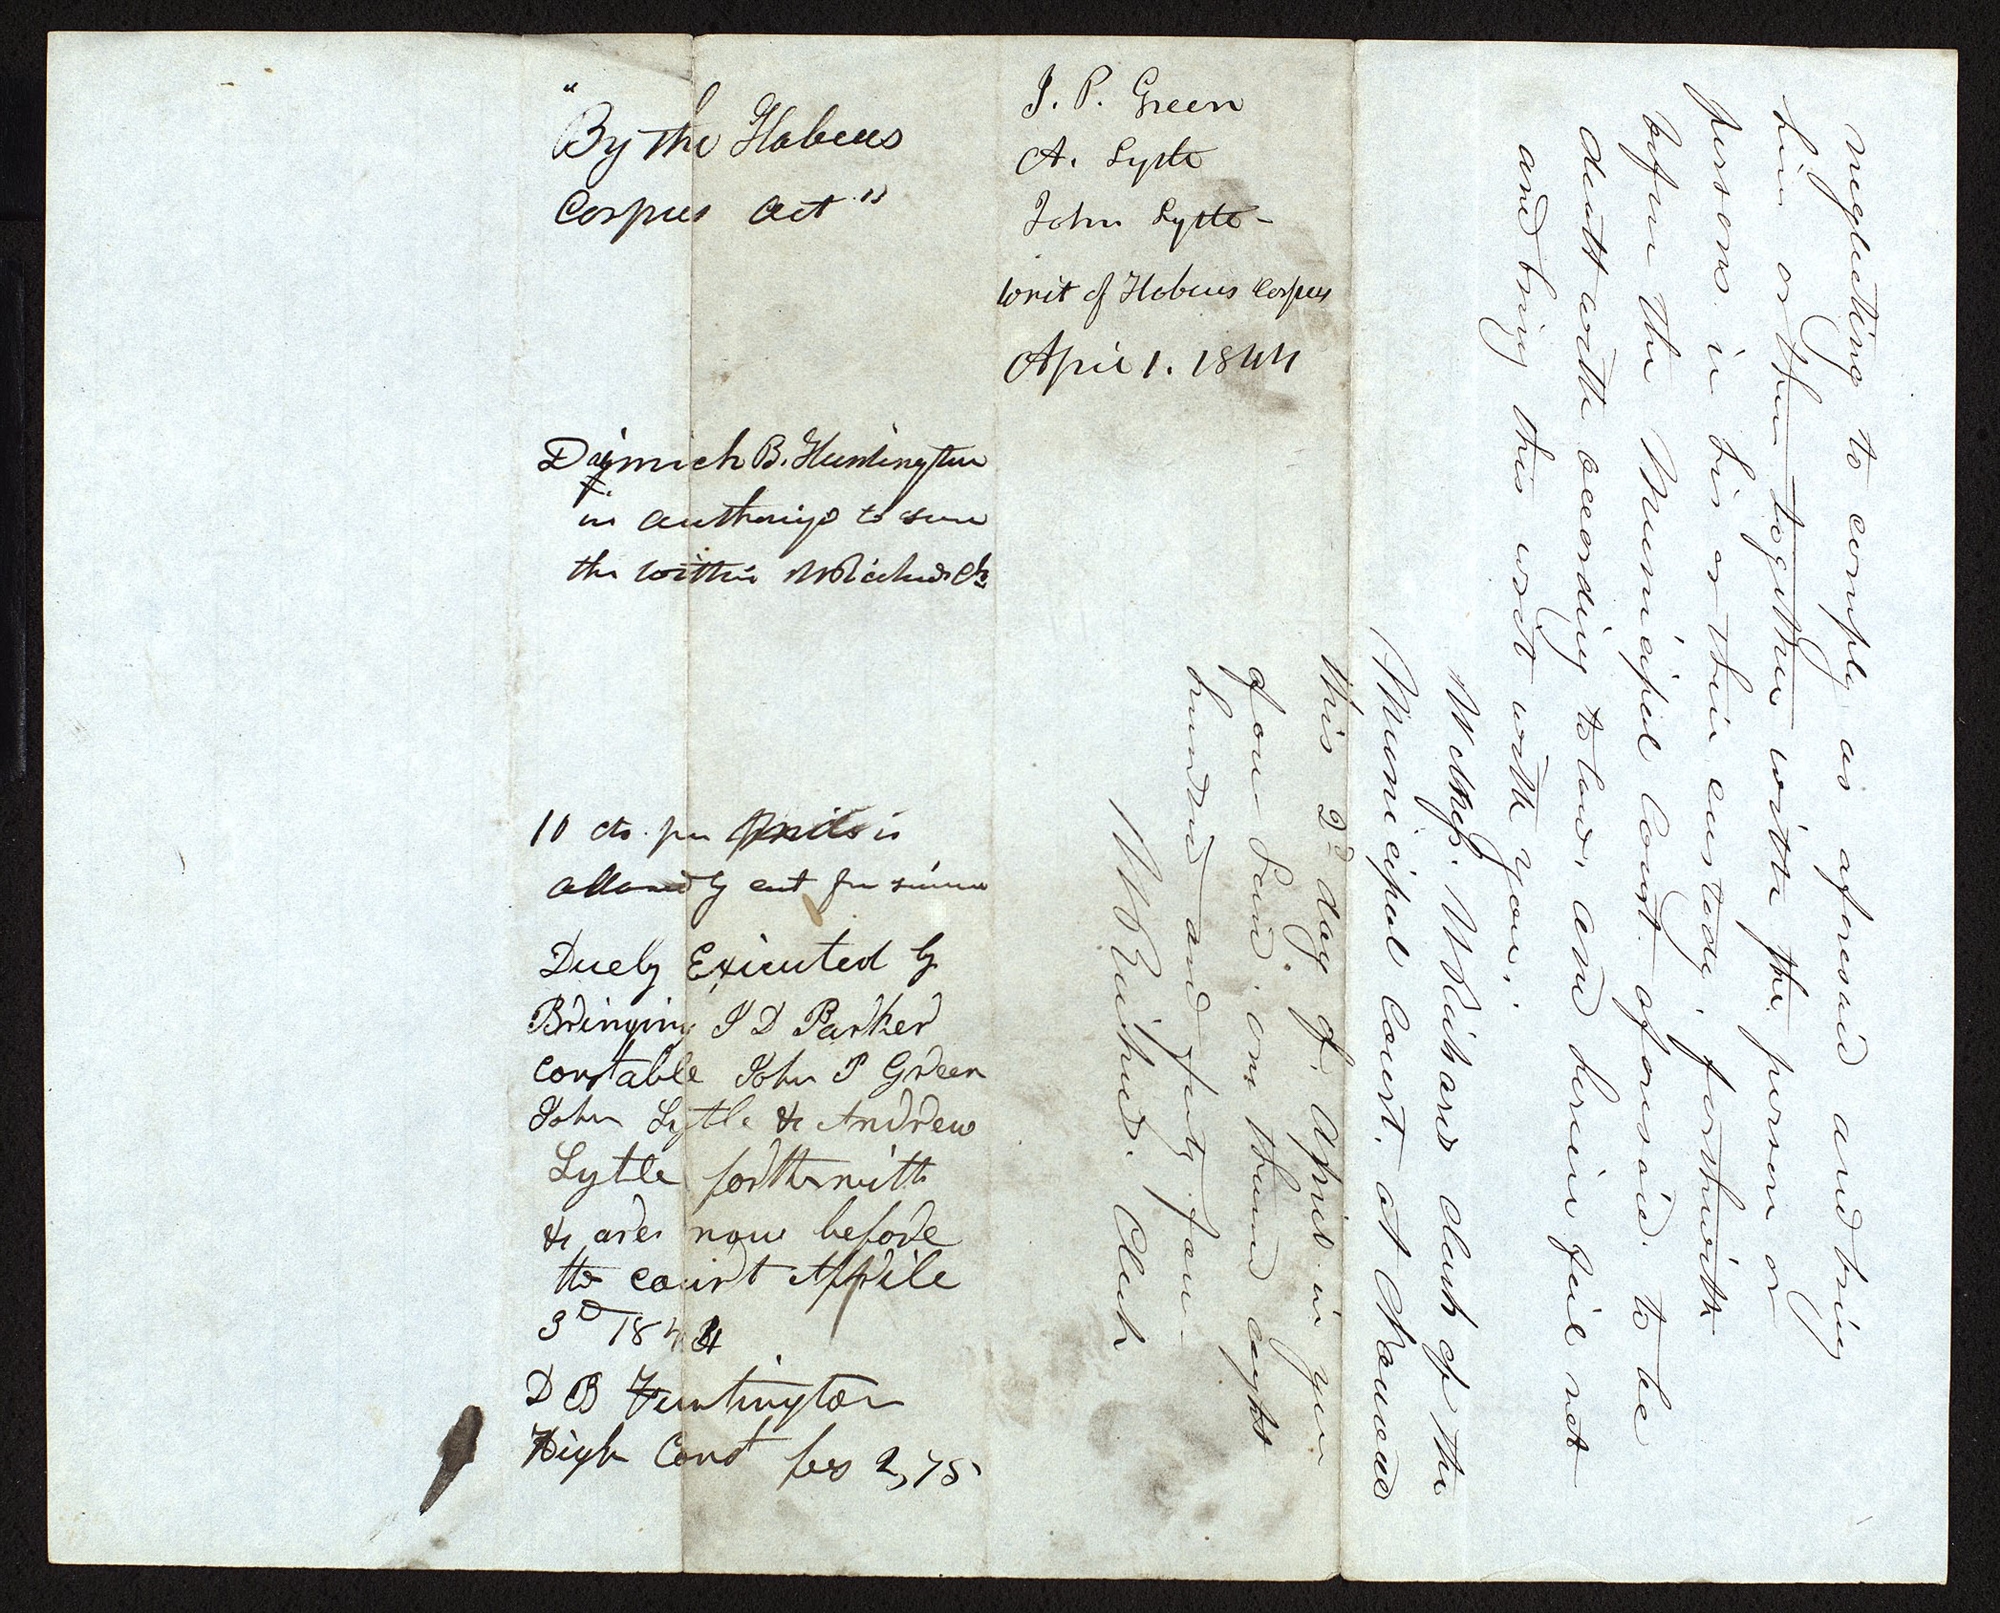 neglecting to comply as aforesaid and bring
him or them together with the person or
persons in his or their custody, forthwith
before the Municipal Court aforesaid, to be
dealt with according to law, and herein fail not
and bring this writ with you.
Witness. W Richards clerk of the
Municipal Court, at Nauvoo
this 2d day of. April in year
of our Lord, one thousand eight
hundred and forty four-
W Richards. Clerk
J. P. Green
A. Lytle
John Lytle -
writ of Habeus Corpus
April 1. 1844
"By the Habeus
Corpus Act"
Dimick B. Huntington
is authorized to serve
the within W Richards Ck
10 cts. per mile is
allowed by act for
Duely Exicuted by
Bringing J D Parker
constable John P Green
John Lytle & Andrew
Lytle forthwith
& are now before
the court Aprile
3D 1844
D B Huntington
High Const fees 2,75